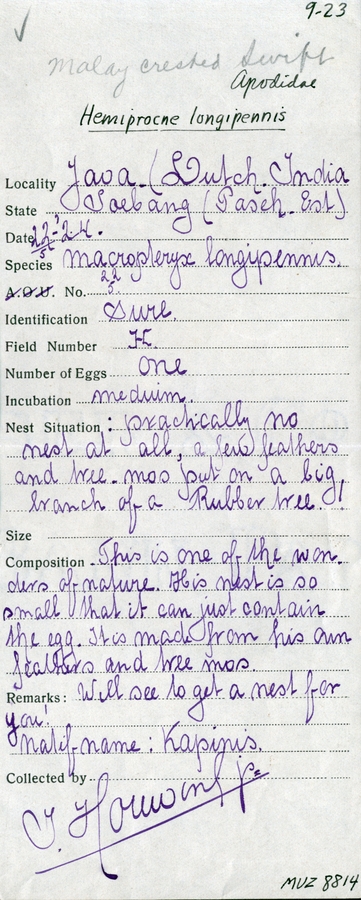 9-23
Malay crested Swift
Apodidae
Hemiprocne longipennis
Locality Java. (Dutch. India
State Soebang (Pasch. Est).
Date 22-'2-4.
Species macropteryx longipennis.
A.O.U. No. 22/5.
Identification Sure.
Field Number H.
Number of Eggs one
Incubation medium.
Nest Situation: practically no
nest at all, a few feathers
and tree-mos put on a big
branch of a Rubber tree!
Size
Composition This is one of the won
ders of nature. His nest is so
small that it can just contain
the egg. It is made from his own
feathers and tree mos.
Remarks: Will see to get a nest for
you!
Natif name: Kapinis.
Collected by
MUZ 8814